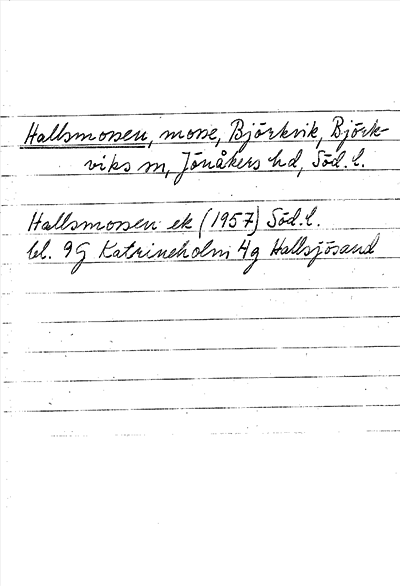 Hallsmossen, mosse, Björkvik, Björk-
viks sn, Jönåkers hd, Söd. l.
Hallsmossen ek (1957) Söd. l.
bl. 9G Katrineholm 4g Hallsjösand